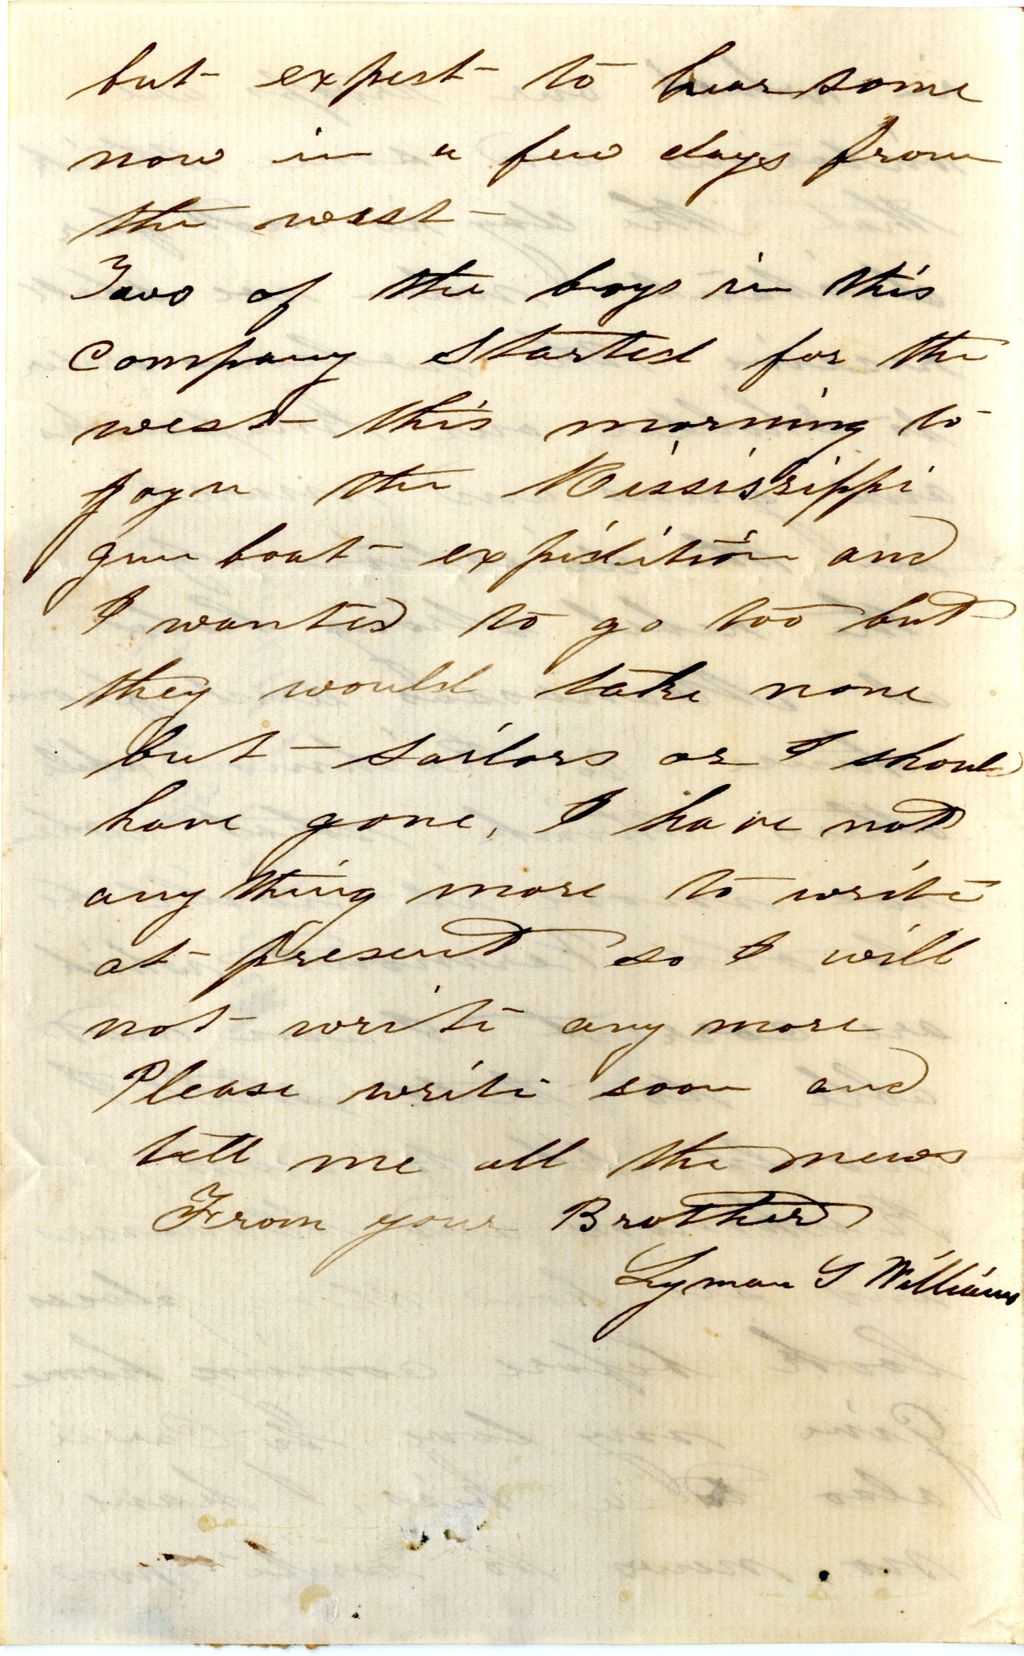 but expect to hear some
now in a few days from
the west
Two of the boys in this
company Started for the
west this morning to
joyn the Mississippi
gun boat expidition and
I wanted to go too but
they would take none
but sailors or I should
have gone, I have not
any thing more to write
at present so I will
not write any more
Please write soon and
tell me all the news
From your Brother
Lyman S Williams